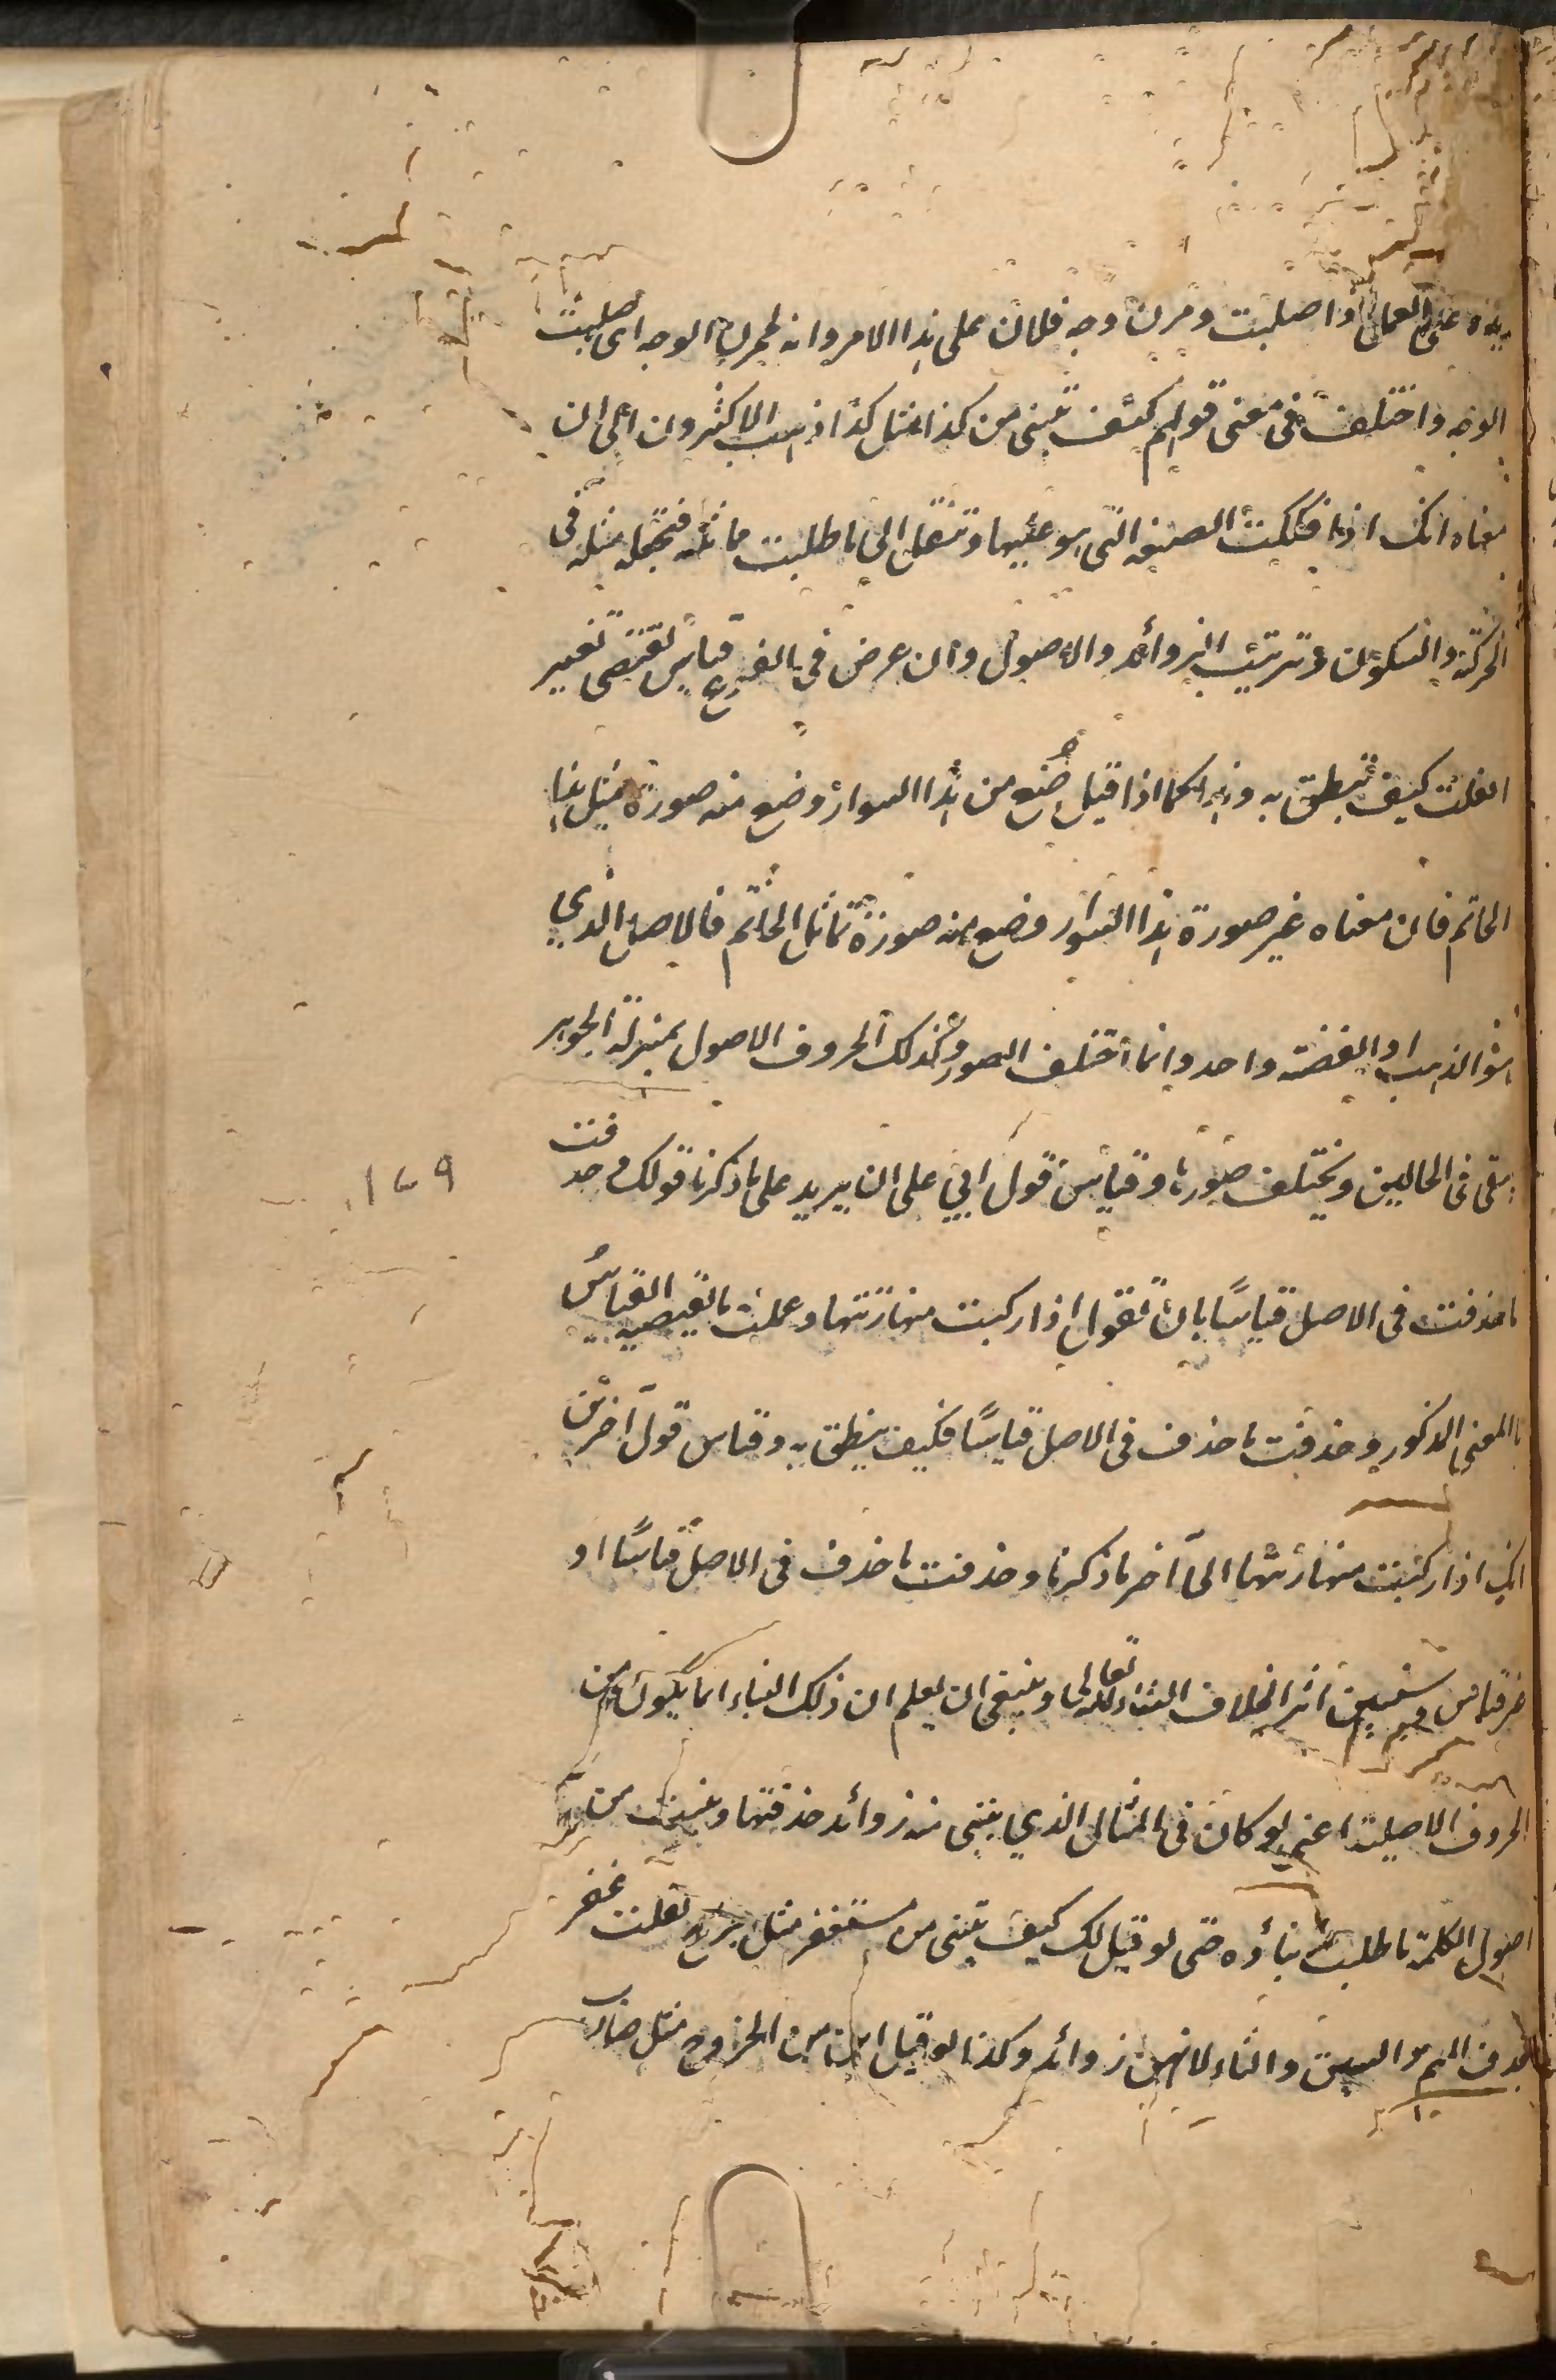 يده على العمل اذا صلبت ومرن وجه فلان على هذا الامر وانه لممرن الوجه اى صلبت
الوجه واختلف فى معنى قولهم كيف تبنى من كذا مثل كذا فذهب الاكثرون الى ان
معناه انك اذا فككت الصيغه التى هو عليها وتنتقل الى ما طلبت مماثلته فتجعله مثله فى
الحركة والسكون وترتيب الزوائد والاصول وان عرض فى الفرع قياس يقتضى تغيير
افعلت كيف تنطق به وهذا كما اذا قيل ضع من هذا السوار وضع منه صورة مثل هذا
الخاتم فان معناه غير صورة هذا السوار وضع منه صورة تماثل الخاتم فالاصل الذي
هو الذهب او الفضة واحد وانما اختلف الصور وكذلك الحروف الاصول بمنزلة الجوهر
يبقى فى الحالين ويختلف صورها وقياس قول ابي على ان يزيد على ما ذكرنا قولك وحذفت
ما حذفت فى الاصل قياسًا بان تقول اذا ركبت منها زنتها وعملت ما يقتضيه القياس
بالمعنى المذكور وحذفت ما حذف فى الاصل قياسًا فكيف ينطق به وقياس قول آخرين
اى اذا ركبت منها زنتها الى آخر ما ذكرنا وحذفت ما حذف فى الاصل قياسًا او
غير قياس وسيتبين اثر الخلاف انشاء الله تعالى وينبغى ان يعلم ان ذلك البناء انما يكون من
الحروف الاصلية اعنى لو كان فى المثال الذي يبنى منه زوائد حذفتها وبنيت من
اصول الكلمة ما طلبت بناؤه حتى لو قيل لك كيف تبنى من مستغفر مثل لقلت غفر
بحذف الميم والسين والتاء لانهن زوائد وكذا لو قيل ابن من الخروج مثل ضارب
١٤٩